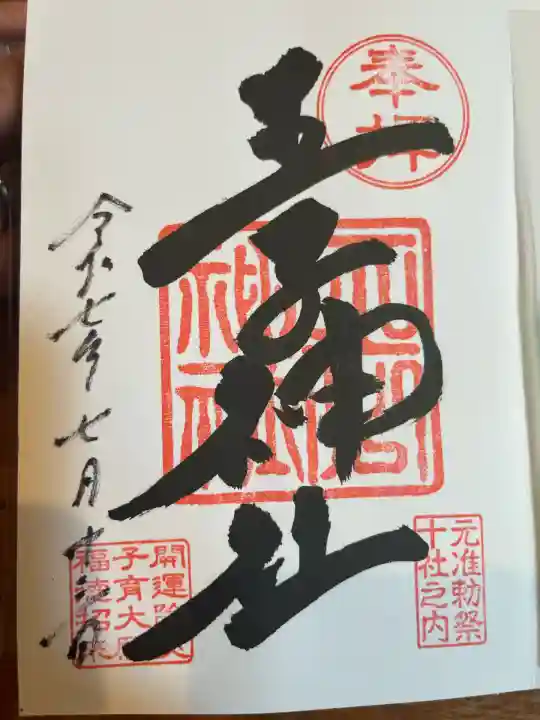 奉拝
王子神社
元准勅祭
十社之内
開運除災
子育大願
福徳招来
令和七年七月